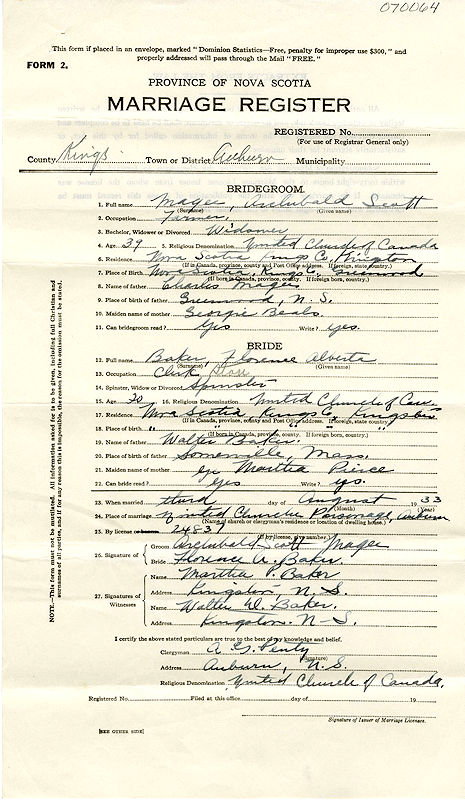 070064
This form if placed in an envelope, marked "Dominion Statistics—Free, penalty for improper use $300," and
properly addressed will pass through the Mail "FREE."
FORM 2.
PROVINCE OF NOVA SCOTIA
MARRIAGE REGISTER
REGISTERED No.
(For use of Registrar General only)
County Kings Town or District Auburn Municipality
BRIDEGROOM.
1. Full name Magee, Archibald Scott
(Surname) (Given name)
2. Occupation Farmer
3. Bachelor, Widower or Divorced Widower
4. Age 39 5. Religious Denomination United Church of Canada
6. Residence Nova Scotia Kings Co. Kingston
(If in Canada, province, county and Post Office address. If foreign, state country.)
7. Place of Birth Nova Scotia, Kings Greenwood
(If born in Canada, province, county. If foreign born, country.)
8. Name of father Charles Magee
9. Place of birth of father Greenwood, N. S.
10. Maiden name of mother Georgie Beals
11. Can bridegroom read? Yes Write? yes.
BRIDE
12. Full name Baker, Florence Alberta
(Surname) (Given name)
13. Occupation Clerk
14. Spinster, Widow or Divorced Spinster
15. Age 20 16. Religious Denomination United Church of Can.
17. Residence Nova Scotia, Kings Co, Kingston
(If in Canada, province, county and Post Office address. If foreign, state country.)
18. Place of birth " " "
(If born in Canada, province, county. If foreign born, country.)
19. Name of father Walter Baker.
20. Place of birth of father Somerville, Mass.
21. Maiden name of mother Martha Pierce
22. Can bride read? Yes Write? yes.
23. When married third day of August 1933
(Month) (Year)
24. Place of marriage United Church Parsonage, Auburn
(Name of church or clergyman's residence or location of dwelling house.)
25. By license or banns 24837
(If by license, give number.)
26. Signature of Groom Archibald Scott Magee
Bride Florence A. Baker.
27. Signature of Witnesses Name Martha P. Baker
Address Kingston, N. S.
Name Walter D. Baker.
Address Kingston. N-S.
I certify the above stated particulars are true to the best of my knowledge and belief.
Clergyman A G.
(Signature)
Address Auburn, N.S.
Religious Denomination United Church of Canada.
Registered No. Filed at this office day of 19
Signature of Issuer of Marriage Licenses.
[SEE OTHER SIDE]
NOTE—This form must not be mutilated. All information asked for is to be given, including full Christian and
surnames of all parties, and if for any reason this is impossible, the reason for the omission must be stated.